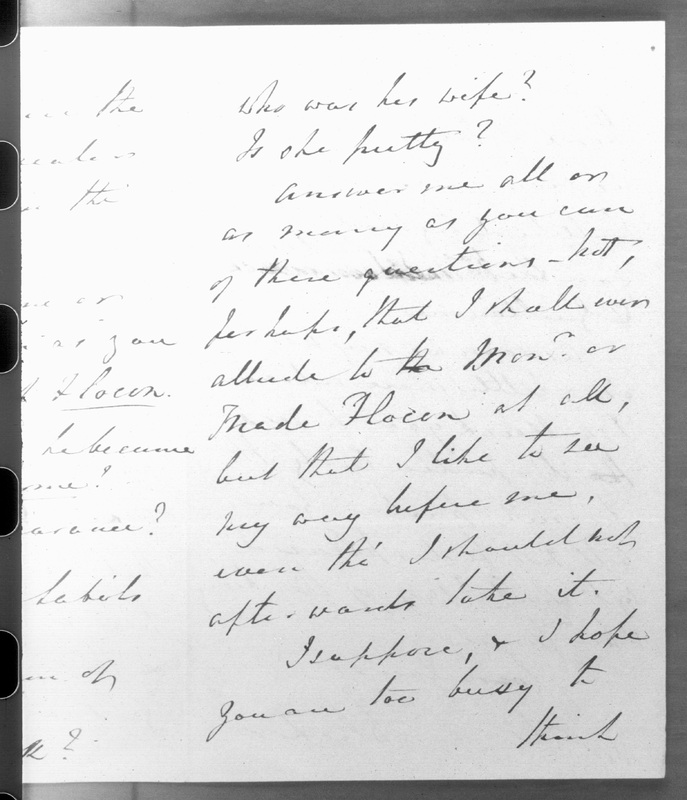 the
the
or
as you
Flocon.
he became
ome?
earance?
habits
of
?
Who was his wife?
Is she pretty?
Answer me all or
as many as you can
of these questions – Not,
perhaps, that I shall ever
allude to Monr. or
Made Flocon at all,
but that I like to see
my way before me,
even tho' I should not
afterwards take it.
I suppose, & I hope
you are too busy to
think